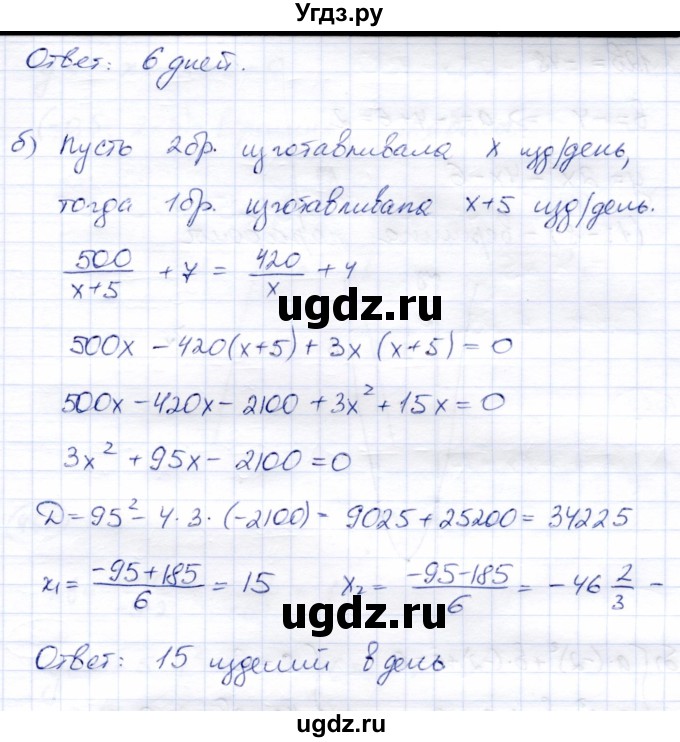 Угдз.ру
Ответ: 6 дней.
б) Пусть 2бр. изготавливала x изд/день,
тогда 1бр. изготавливала x+5 изд/день.
500/(x+5) + 7 = 420/x + 4
ugdz.ru
500x - 420(x+5) + 3x(x+5) = 0
500x - 420x - 2100 + 3x² + 15x = 0
3x² + 95x - 2100 = 0
Д = 95² - 4·3·(-2100) = 9025 + 25200 = 34225
x₁ = (-95+185)/6 = 15 x₂ = (-95-185)/6 = -46 2/3 -
ugdz.ru
Ответ: 15 изделий в день
ugdz.ru